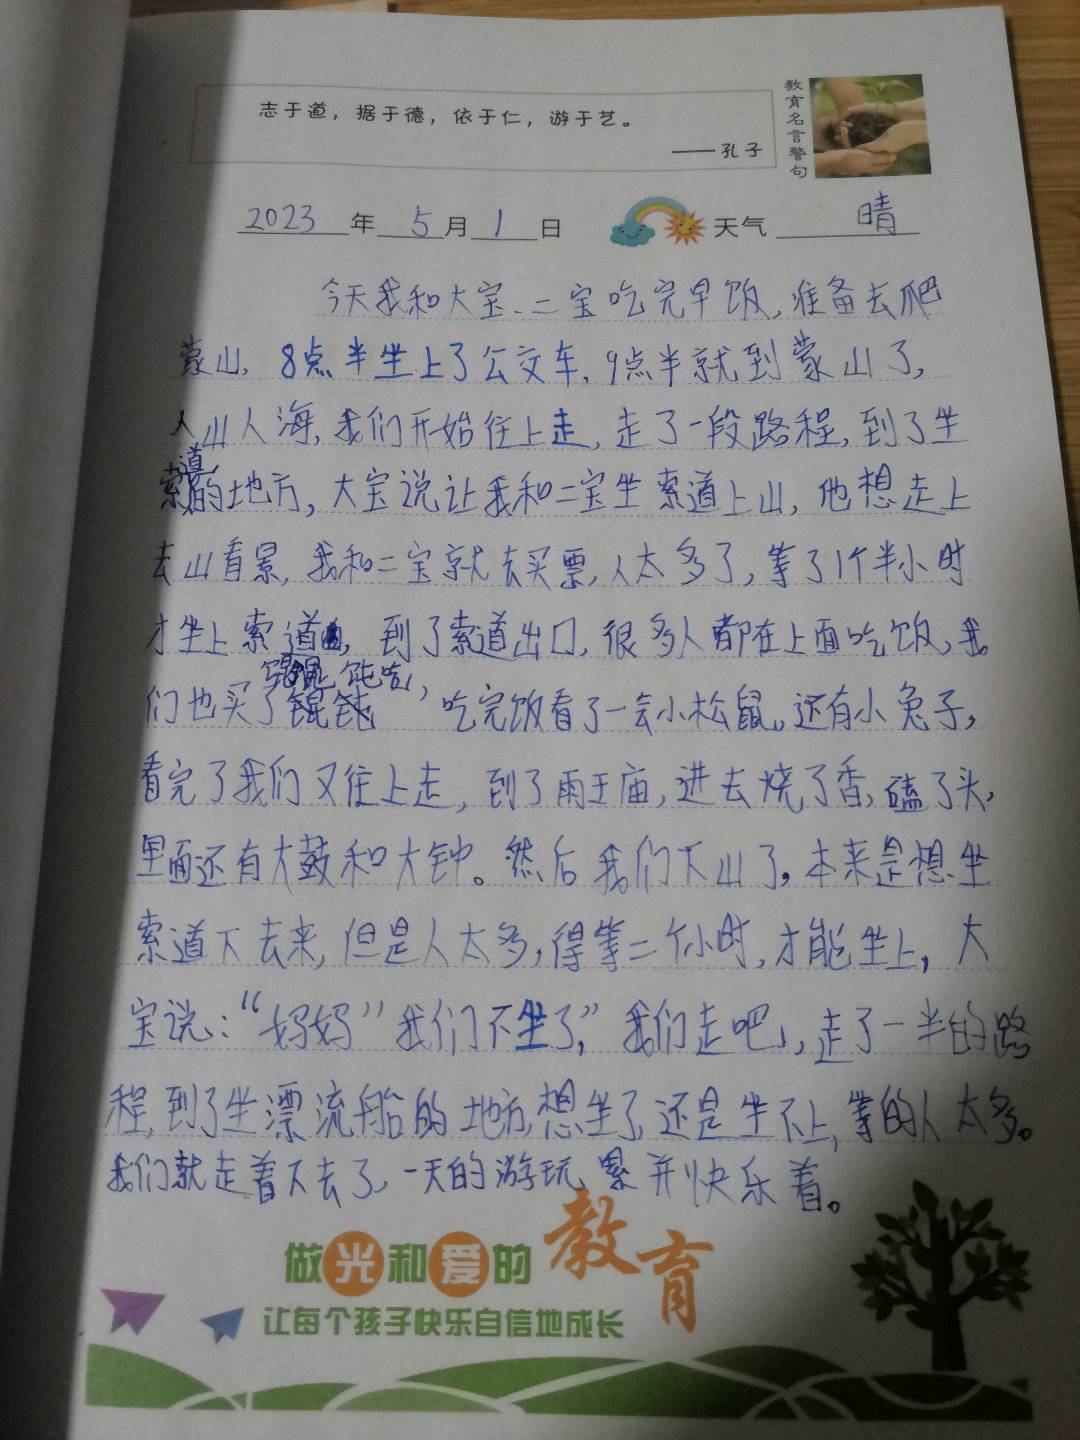 志于道，据于德，依于仁，游于艺。
——孔子
教育名言警句
2023年5月1日 天气 晴
今天我和大宝、二宝吃完早饭，准备去爬
蒙山，8点半坐上了公交车，9点半就到蒙山了，
人山人海，我们开始往上走，走了一段路程，到了坐
索道的地方，大宝说让我和二宝坐索道上山，他想走上
去山看景，我和二宝就去买票，人太多了，等了1个半小时
才坐上索道，到了索道出口，很多人都在上面吃饭，我
们也买了馄饨吃，吃完饭看了一会小松鼠，还有小兔子，
看完了我们又往上走，到了雨王庙，进去烧了香，磕了头，
里面还有大鼓和大钟。然后我们下山了，本来是想坐
索道下去来，但是人太多，得等二个小时，才能坐上，大
宝说：“妈妈”我们不坐了，”我们走吧，走了一半的路
程，到了坐漂流船的地方，想坐了，还是坐不上，等的人太多。
我们就走着下去了，一天的游玩，累并快乐着。
做光和爱的教育
让每个孩子快乐自信地成长